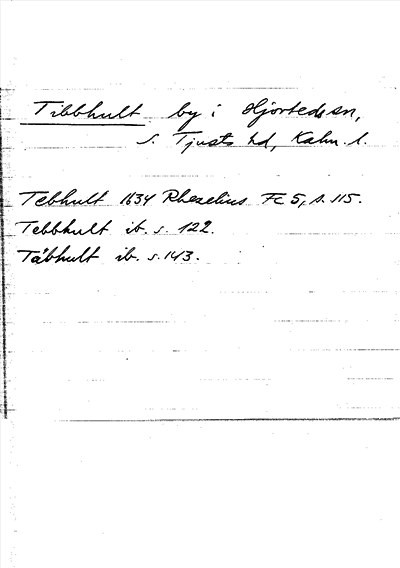 Tibbhult by i Hjorteds sn,
s. Tjusts hd, Kalm. l.
Tebhult 1634 Rhezelius Fc 5, s. 115.
Tebbhult ib. s. 122.
Tåbhult ib. s. 143.